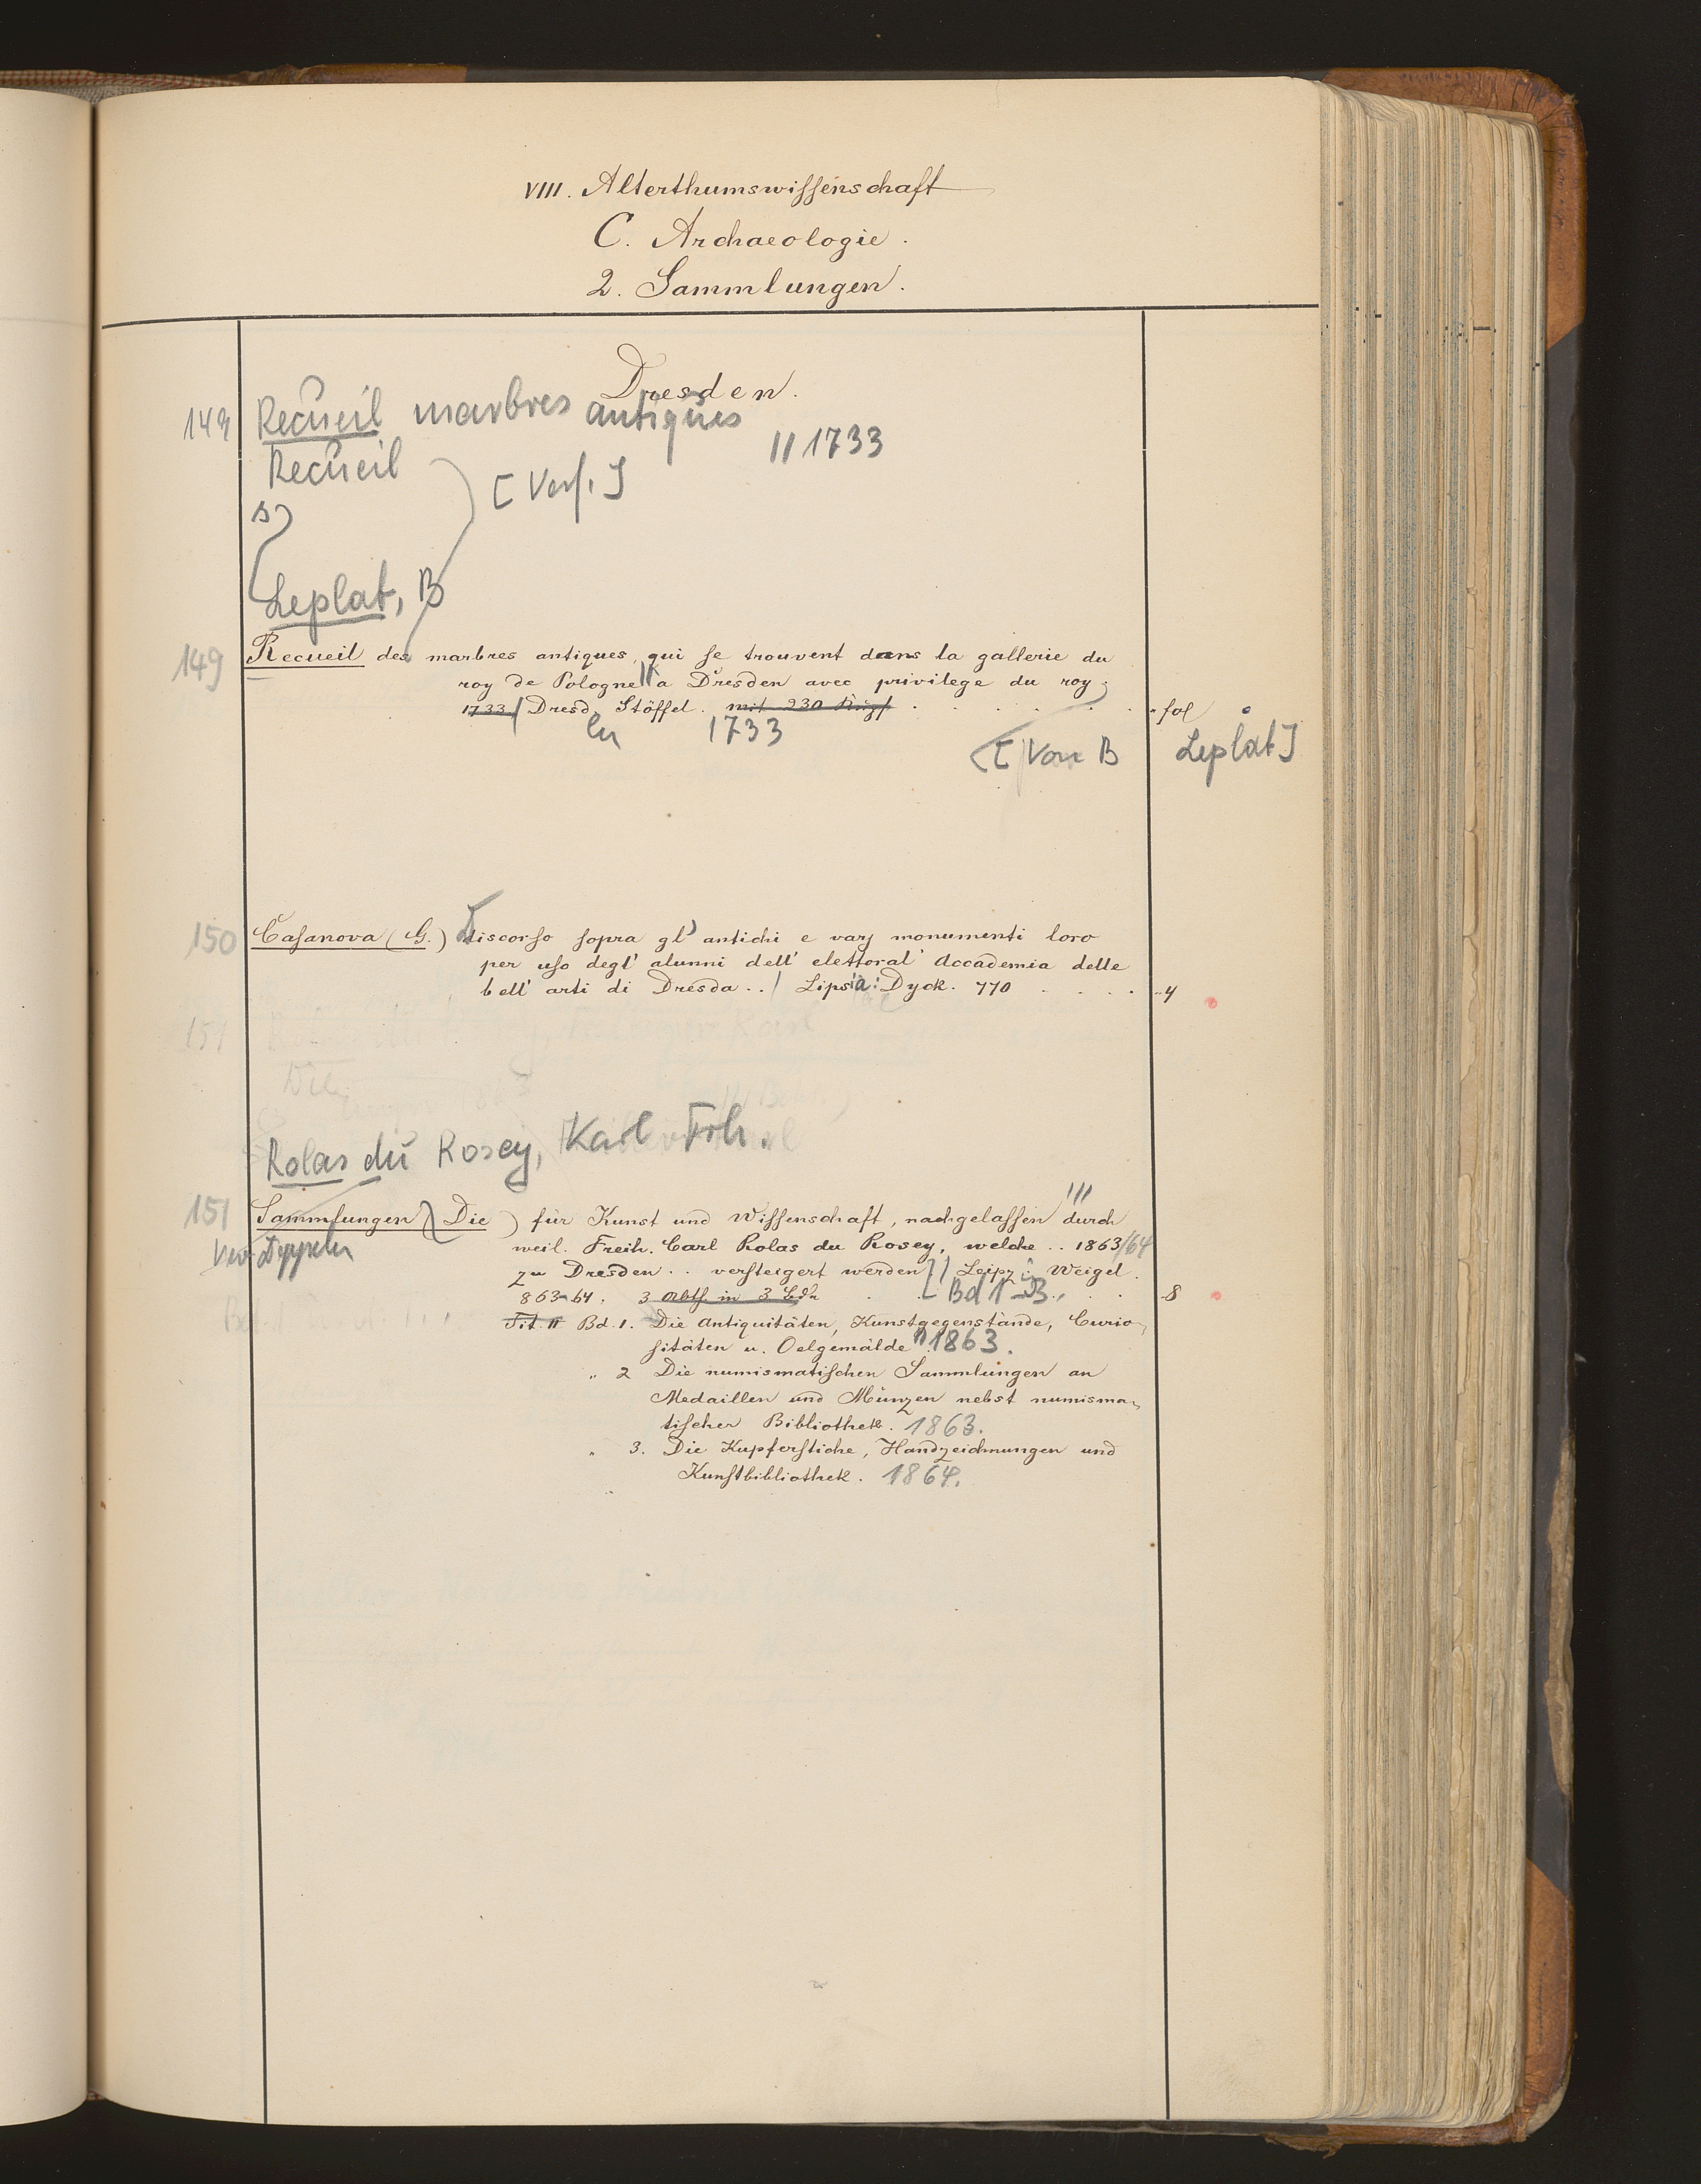 VIII. Alterthumswiſſenschaft
C. Archaeologie.
2. Sammlungen.
Dresden.
149 Recueil marbres antiques
// 1733
Recueil
[Verf.]
s)
Leplat, B
149 Recueil des marbres antiques, qui se trouvent dans la gallerie du
roy de Pologne // a Dresden avec privilege du roy
1733 / Dresd. Stöffel. mit 230 Kupf. fol
1733
[Von B Leplat]
150 Caſanova (G.) Discorſo ſopra gl' antichi e varj monumenti loro
per uſo degl' alunni dell' elettoral' Accademia delle
bell' arti di Dresda.. / Lipsia: Dyck. 770 4
151
Rolas du Rosey, Karl Frh.
151 Sammlungen (Die) für Kunst und Wiſſenschaft, nachgelaſſen durch
weil. Freih. Carl Rolas du Rosey, welche .. 1863/64
zu Dresden .. verſteigert werden / Leipz: Weigel.
863-64. 3 Abth. in 3 Bdn Bd 1-3. 8
Tit. Bd. 1. Die Antiquitäten, Kunstgegenstände, Curio-
ſitäten u. Oelgemälde 1863.
" 2 Die numismatischen Sammlungen an
Medaillen und Münzen nebst numisma-
tiſcher Bibliothek. 1863.
" 3. Die Kupferſtiche, Handzeichnungen und
Kunſtbibliothek. 1864.